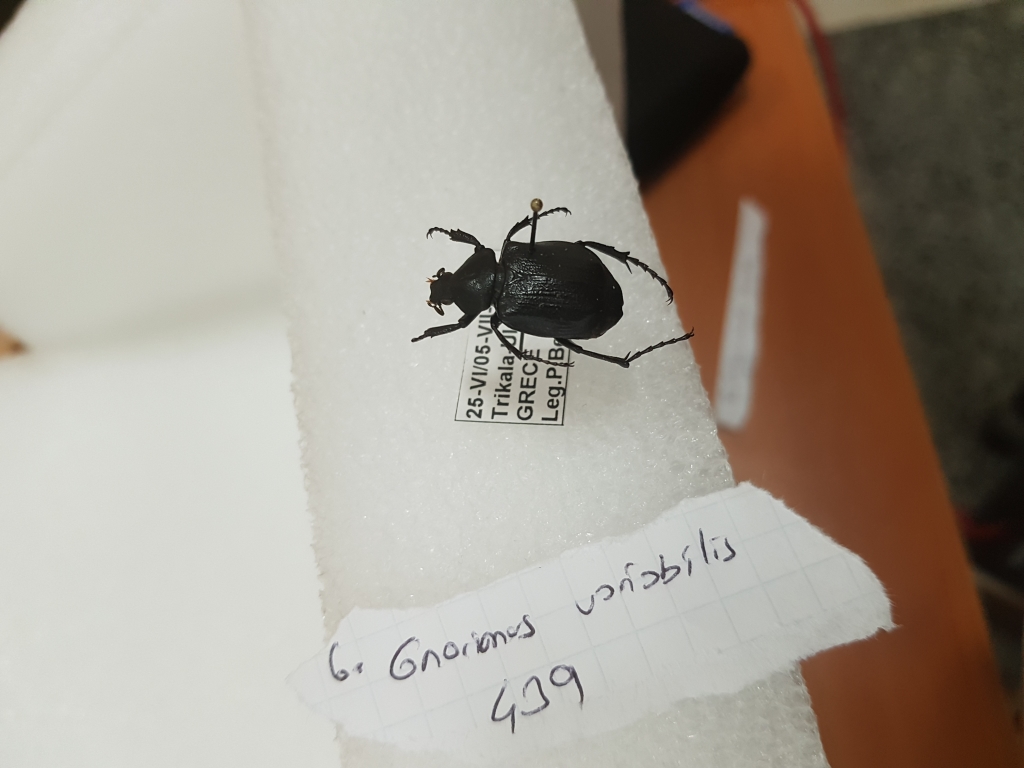 25-VI/05-VII
Trikala
GRECE
Leg.P.B
6. Gnorimus variabilis
439